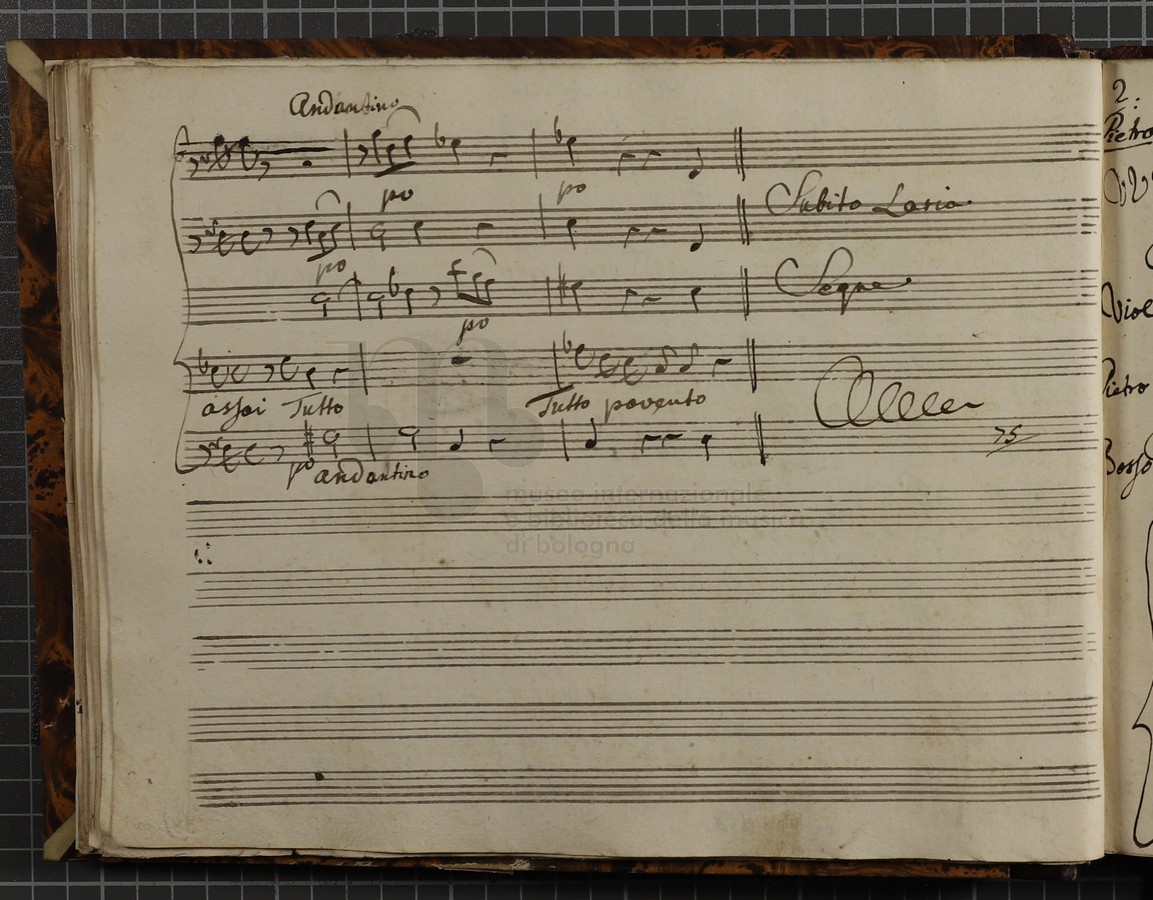 Andantino
po
po
Subito L'aria
po
Segue
po
assai Tutto
Tutto pavento
75
po andantino
museo internazionale
e biblioteca della musica
di bologna
2:
Pietro
Viol
Pietro
Basso